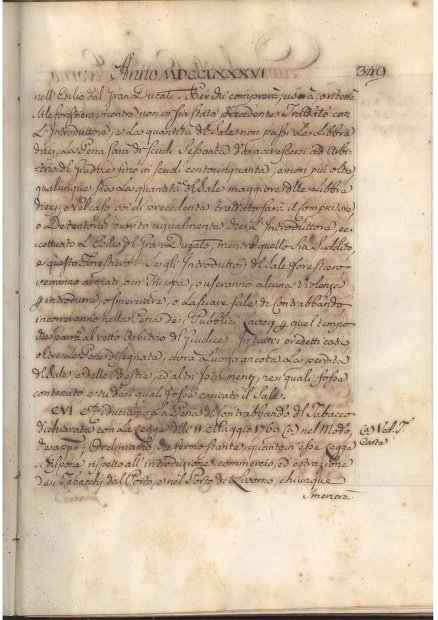 Anno MDCCLXXXVI 349
nell'Esilio dal Gran Ducato. Per chi comprerà, userà, o riterrà
Sale forestiero, mentre non vi sia stato precedente Trattato con
L'Introduttore, e La quantità del Sale non passi Le Libbre
dieci, La Pena sarà di Scudi Sessanta d'accrescersi ad Arbi-
trio del Giudice fino in Scudi centocinquanta, e non più oltre
qualunque sia La quantità del Sale maggiore delle Libbre
dieci; e nel caso poi di precedente trattato sarà il Compratore,
o Detentore punito ugualmente che L'Introduttore, ec-
cettuato L'Esilio del Gran Ducato, mentre quello sia Suddito,
e questo Forestiero. Se gl'Introduttori del Sale forestiero
verranno armati o in Truppa, o useranno alcuna Violenza
p introdurre, o smerciare, o Lasciare Sale di Contrabbando,
incorreranno nella Pena de' Pubblici Lavori p quel tempo
che parrà al retto Arbitrio del Giudice. In tutti i predetti casi
oltre Le Pene disegnate, avrà Luogo ancora La perdita
del Sale, e delle Bestie, ed altri Istrumenti, nei quali fosse
contenuto, e su dei quali fosse caricato il Sale.
CVI. Riduciamo La Pena di Contrabbando del Tabacco
dichiarata con La Legge dell' 11 Maggio 1769 (a) nel Modo (a) Ved. T.
che appo; Ordiniamo che fermo stante, quanto in essa Legge
si dispone rispetto all'introduzione, commercio, ed estrazione
de' Tabacchi dal Porto, e nel Porto di Livorno, chiunque
smercerà